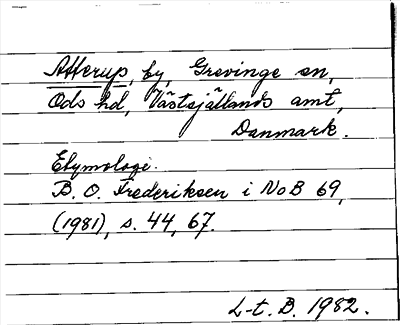 Atterup, by, Grevinge sn,
Ods hd, Västsjällands amt,
Danmark.
Etymologi.
B. O. Frederiksen i NoB 69,
(1981), s. 44, 67.
L-t. B. 1982.